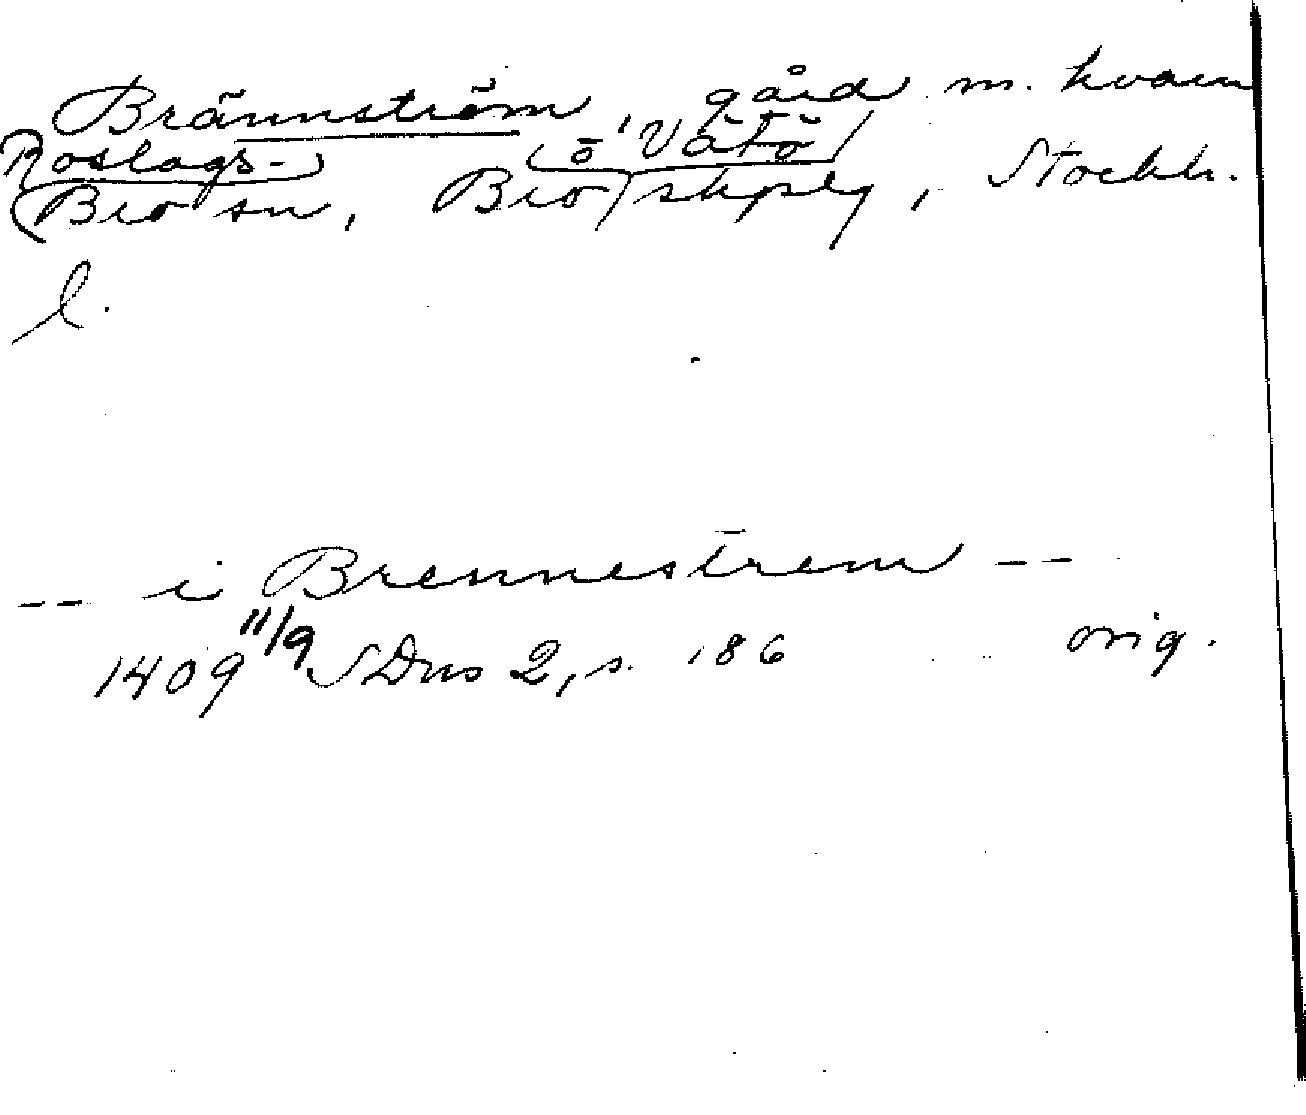 Brännström, gård m. kvarn
Roslags- ö Vätö
Bro sn, Bro skpsg, Stockh.
l.
-- i Brennestrem --
1409 11/9 SDns 2, s. 186 orig.